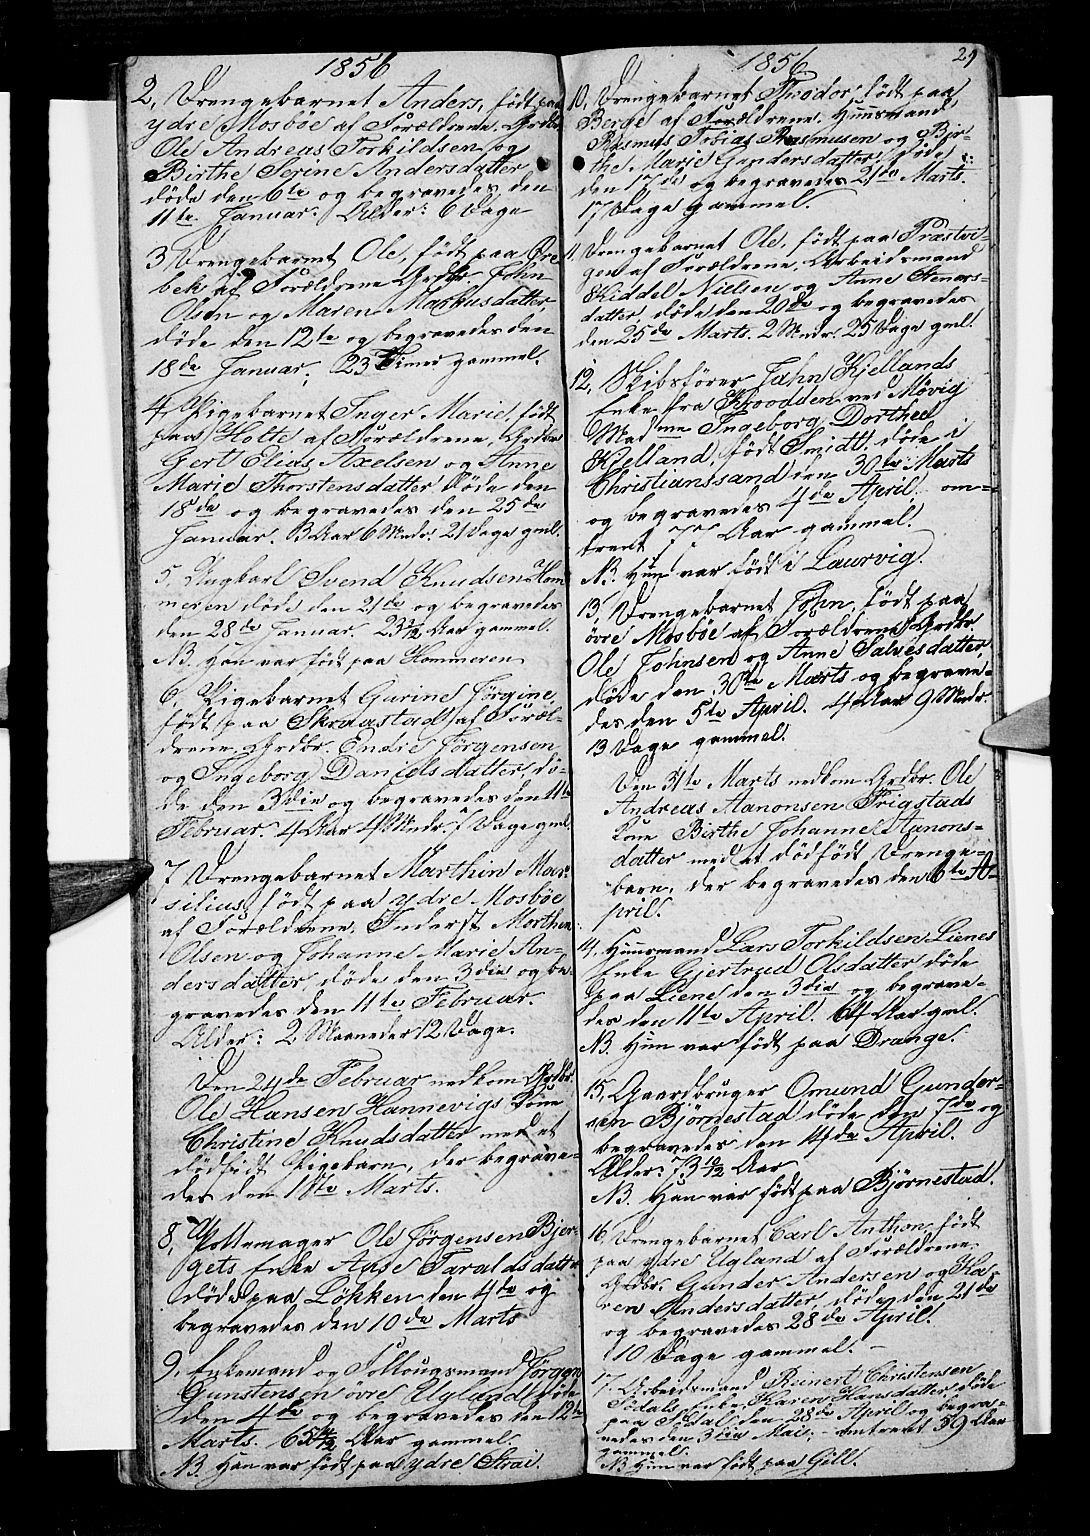 1856
2, Drengebarnet Anders, født paa
ydre Mosbøe af Forældrene Grdbr
Ole Andreas Torkildsen og
Birthe Serine Andersdatter
døde den 6te og begravedes den
11te Januar. Alder: 6 Dage
3, Drengebarnet Ole, født paa Bre
bek af Forældrene Grdbr. John
Olsen og Maren Markusdatter,
døde den 12te og begravedes den
18de Januar, 23 Timer gammel.
4, Pigebarnet Inger Marie, født
paa Holte af Forældrene, Grdbr
Gert Elias Axelsen og Anne
Marie Thorstensdatter døde den
18de og begravedes den 25de
Januar. 3 Aar 6 Mndr. 21 Dage gml.
5, Ungkarl Svend Knudsen Hom
meren døde den 21de og begravedes
den 28de Januar. 23 1/2 Aar gammel.
NB. Han var født paa Hommeren
6, Pigebarnet Gurine Jørgine,
født paa Skraastad af Foræl-
drene, Grdbr. Endre Jørgensen
og Ingeborg Danielsdatter, dø-
de den 3die og begravedes den 11te
Februar. 4 Aar 4 Mndr. 7 Dage gml.
7, Drengebarnet Marthin Mar-
silius, født paa ydre Mosbøe
af Forældrene, Inderst Morthen
Olsen og Johanne Marie An-
dersdatter, døde den 3die og be
gravedes den 11te Februar.
Alder: 2 Maaneder 12 Dage.
Den 24de Februar nedkom Grdbr.
Ole Hansen Hannevigs Kone
Christine Knudsdatter med et
dødfødt Pigebarn, der begrave-
des den 18te Marts.
8, Pottemager Ole Jørgensen Bjer-
gets Enke Aase Taraldsdatter
døde paa Løkken den 4de og
begravedes den 10de Marts
9, Enkemand og Follougsmand Jørgen
Gunstensen øvre Ugland døde
den 4de og begravedes den 12te
Marts. 65 Aar gammel
NB. Han var født paa ydre Strai.
1856
29
10, Drengebarnet Thodor, født paa
Berge af Forældrene, Huusmand
Rasmus Tobias Rasmusen og Bir-
the Marie Gundersdatter døde
den 17de og begravedes 21de Marts.
17 Dage gammel.
11, Drengebarnet Ole, født paa Præstvei
gen af Forældrene, Arbeidsmand
Kiddel Nielsen og Anne Stenars-
datter, døde den 20de og begravedes
den 25de Marts. 2 Mndr. 25 Dage gml.
12, Skibsfører Jahn Kjellands
Enke fra Kroodden ved Møvig
Madme Ingeborg Dorthea
Kjelland, født Smidt, døde i
Christianssand den 30te Marts
og begravedes 4de April. om-
trent 77 Aar gammel.
NB. Hun var født i Laurvig.
13, Drengebarnet John, født paa
øvre Mosbøe af Forældrene Grdbr.
Ole Johnsen og Anne Salvesdatter,
døde den 30te Marts og begrave-
des den 5te April. 4 Aar 9 Mndr.
13 Dage gammel.
Den 31te Marts nedkom Grdbr. Ole
Andreas Aanonsen Frigstads
Kone Birthe Johanne Aanons-
datter med et dødfødt Drenge-
barn, der begravedes den 6te A-
pril.
14, Huusmand Lars Torkildsen Lienes
Enke Gjertrud Olsdatter døde
paa Liene den 3die og begrave-
des den 11te April. 64 Aar gml.
NB. Hun var født paa Drange.
15, Gaardbruger Omund Gunder-
sen Bjørnestad døde den 7de og
begravedes den 14de April.
Alder: 73 1/2 Aar
NB. Han var født paa Bjørnestad.
16, Drengebarnet Carl Anthon, født
paa ydre Ugland af Forældrene
Grdbr. Gunder Andersen og Ka-
ren Andersdatter, døde den 21de
og begravedes 28de April.
10 Dage gammel. –
17, Arbeidsmand Christensen
Sødals Enke Karen Hansdatter, døde
paa Sødal den 28de April og begra-
vedes den 3die Mai, – omtrent 59 Aar
gammel.
NB. Hun var født paa Gill.